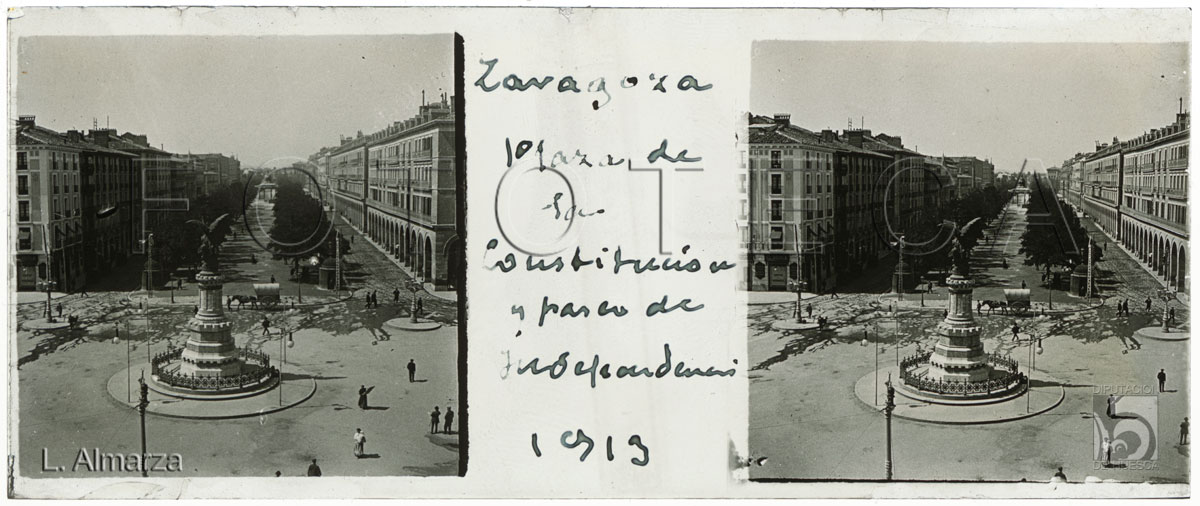 Zaragoza
Plaza de
la
Constitución
y paseo de
Independencia
1913
FOTOTECA
L. Almarza
DIPUTACIÓN
DE HUESCA